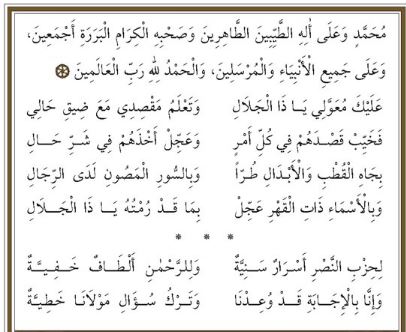 مُحَمَّدٍ وَعَلَى أٰلِهِ الطَّيِّبِينَ الطَّاهِرِينَ وَصَحْبِهِ الْكِرَامِ الْبَرَرَةِ أَجْمَعِينَ،
وَعَلَى جَمِيعِ الْأَنْبِيَاءِ وَالْمُرْسَلِينَ، وَالْحَمْدُ لِلّٰهِ رَبِّ الْعَالَمِينَ
عَلَيْكَ مُعَوَّلِي يَا ذَا الْجَلَالِ وَتَعْلَمُ مَقْصِدِي مَعَ ضِيقِ حَالِي
فَخَيِّبْ قَصْدَهُمْ فِي كُلِّ أَمْرٍ وَعَجِّلْ أَخْذَهُمْ فِي شَرِّ حَالِ
بِجَاهِ الْقُطْبِ وَالْأَبْدَالِ طُرًّا وَبِالسُّورِ الْمَصُونِ لَدَى الرِّجَالِ
وَبِالْأَسْمَاءِ ذَاتِ الْقَهْرِ عَجِّلْ بِمَا قَدْ رُمْتُهُ يَا ذَا الْجَلَالِ
* * *
لِحِزْبِ النَّصْرِ أَسْرَارٌ سَنِيَّةٌ وَلِلرَّحْمٰنِ أَلْطَافٌ خَفِيَّةٌ
وَإِنَّا بِالْإِجَابَةِ قَدْ وُعِدْنَا وَتَرْكُ سُؤَالِ مَوْلَانَا خَطِيَّةٌ